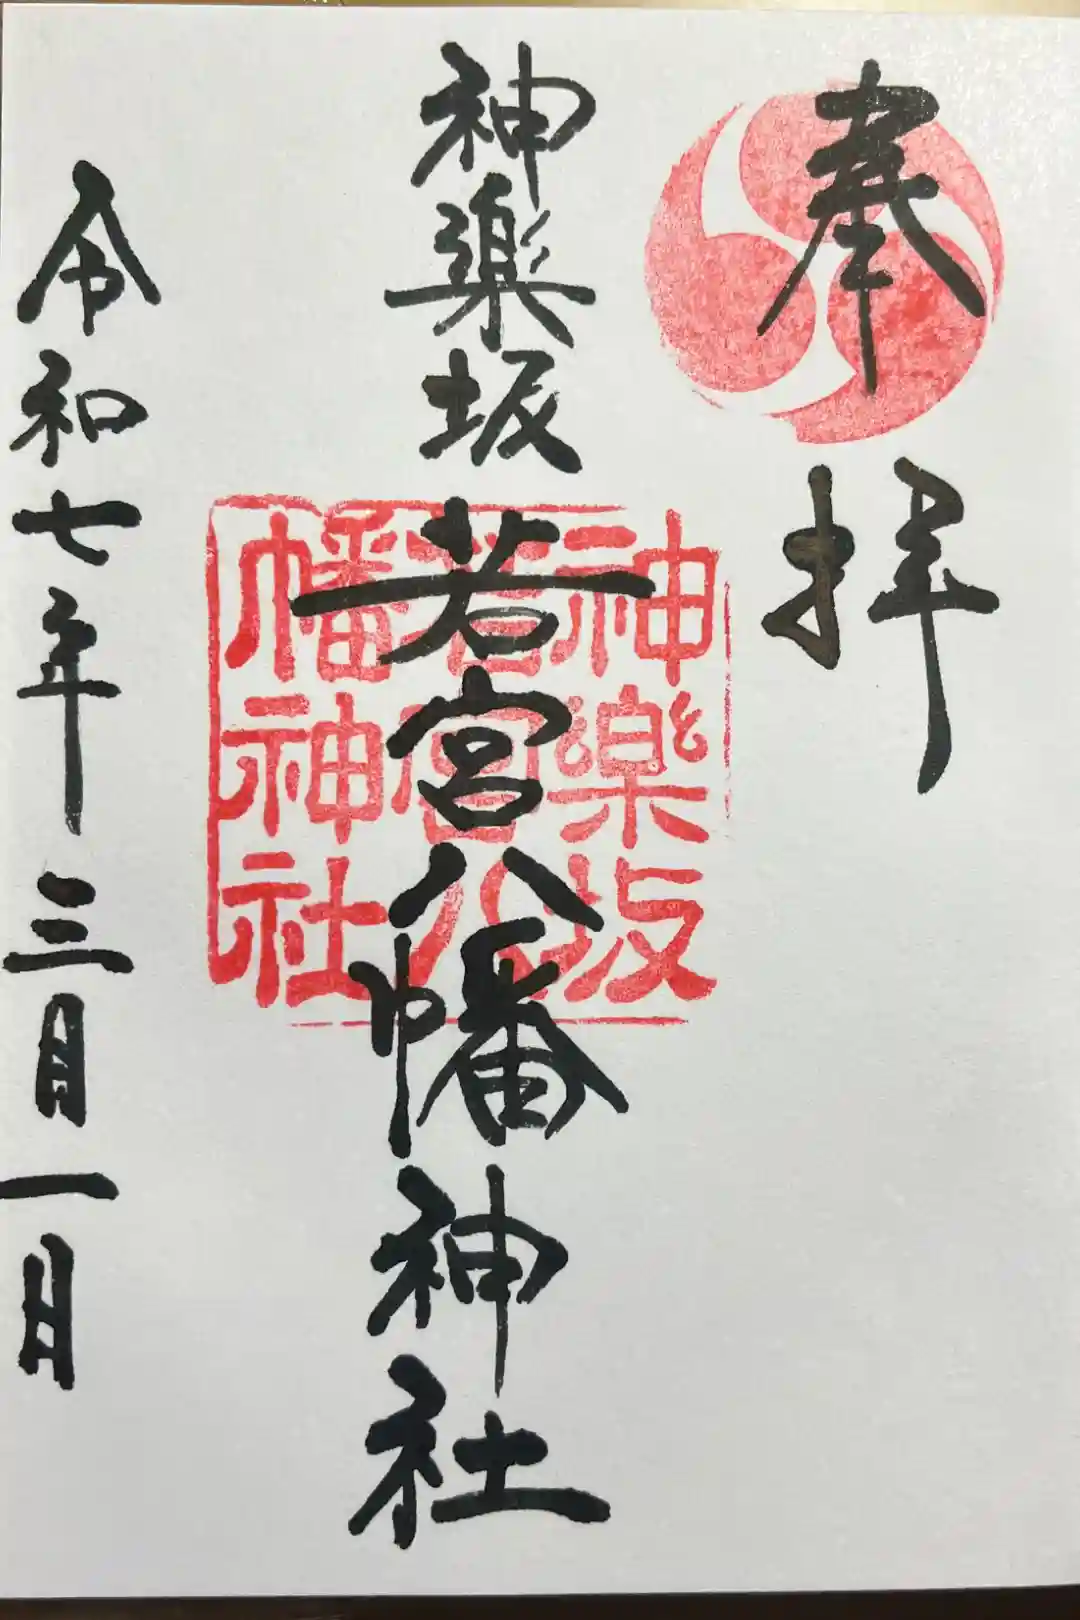 奉拝
神楽坂若宮八幡神社
神樂坂
若宮八
幡神社
令和七年三月一日